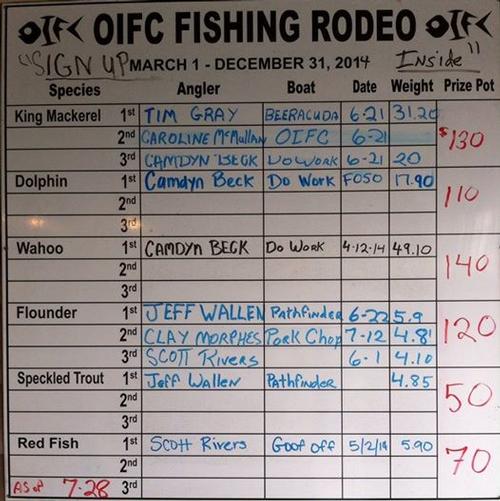 OIFC OIFC FISHING RODEO OIFC
"SIGN UP MARCH 1 - DECEMBER 31, 2014 Inside"
Species Angler Boat Date Weight Prize Pot
King Mackerel 1st TIM GRAY BEERACUDA 6-21 31.20 $130
2nd CAROLINE McMullan OIFC 6-21
3rd CAMDYN BECK DO WORK 6-21 20
Dolphin 1st Camdyn Beck Do Work 17.90 110
2nd
3rd
Wahoo 1st CAMDYN BECK Do Work 4-12-14 49.10 140
2nd
3rd
Flounder 1st JEFF WALLEN Pathfinder 6-22 5.9 120
2nd CLAY MORPHES Pork Chop 7-12 4.81
3rd SCOTT Rivers 6-1 4.10
Speckled Trout 1st Jeff Wallen Pathfinder 4.85 50
2nd
3rd
Red Fish 1st Scott Rivers Goof off 5/2/14 5.90 70
2nd
AS of 7-28 3rd